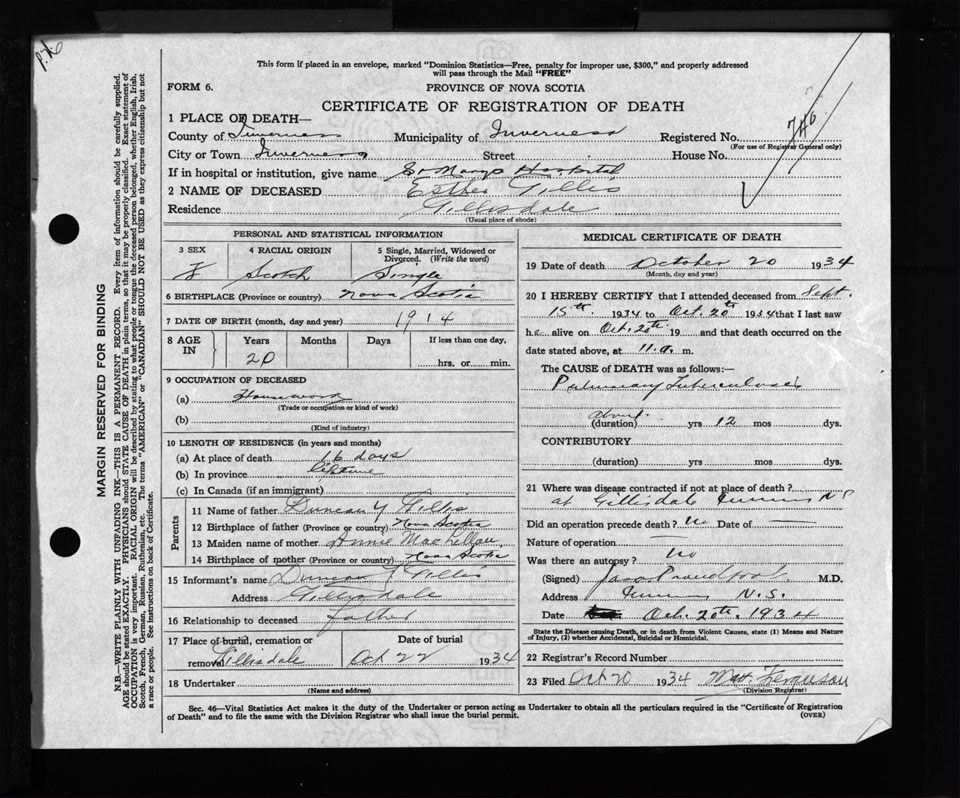 P.K
This form if placed in an envelope, marked "Dominion Statistics—Free, penalty for improper use, $300," and properly addressed
will pass through the Mail "FREE"
FORM 6.
PROVINCE OF NOVA SCOTIA
CERTIFICATE OF REGISTRATION OF DEATH
746
1 PLACE OF DEATH—
County of Inverness Municipality of Inverness Registered No.
(For use of Registrar General only)
City or Town Inverness Street House No.
If in hospital or institution, give name St Marys Hospital
2 NAME OF DECEASED Esther Gillis
Residence Gillisdale
(Usual place of abode)
PERSONAL AND STATISTICAL INFORMATION
3 SEX 4 RACIAL ORIGIN 5 Single, Married, Widowed or
Divorced. (Write the word)
F Scotch Single
6 BIRTHPLACE (Province or country) Nova Scotia
7 DATE OF BIRTH (month, day and year) 1914
8 AGE IN Years Months Days If less than one day,
20 hrs. or min.
9 OCCUPATION OF DECEASED
(a) Housework
(Trade or occupation or kind of work)
(b)
(Kind of industry)
10 LENGTH OF RESIDENCE (in years and months)
(a) At place of death 16 days
(b) In province lifetime
(c) In Canada (if an immigrant)
Parents
11 Name of father Duncan Y Gillis
12 Birthplace of father (Province or country) Nova Scotia
13 Maiden name of mother Annie MacLellan
14 Birthplace of mother (Province or country) Nova Scotia
15 Informant's name Duncan Y Gillis
Address Gillisdale
16 Relationship to deceased father
17 Place of burial, cremation or Date of burial
removal Gillisdale Oct 22 1934
18 Undertaker
(Name and address)
MEDICAL CERTIFICATE OF DEATH
19 Date of death October 20 1934
(Month, day and year)
20 I HEREBY CERTIFY that I attended deceased from Sept.
15th. 1934 to Oct. 20th 1934 that I last saw
h alive on Oct. 20th 19 and that death occurred on
date stated above, at 11.a. m.
The CAUSE of DEATH was as follows:—
Pulmonary Tuberculosis
about
(duration) yrs 12 mos dys.
CONTRIBUTORY
(duration) yrs mos dys.
21 Where was disease contracted if not at place of death?
at Gillisdale N S
Did an operation precede death? No Date of —
Nature of operation —
Was there an autopsy? No
(Signed) M.D.
Address N.S.
Date Oct. 20th. 1934
State the Disease causing Death, or in death from Violent Causes, state (1) Means and Nature
of Injury, (2) whether Accidental, Suicidal or Homicidal.
22 Registrar's Record Number
23 Filed Oct 20 1934 Mat. Ferguson
(Division Registrar)
Sec. 46—Vital Statistics Act makes it the duty of the Undertaker or person acting as Undertaker to obtain all the particulars required in the "Certificate of Registration
of Death" and to file the same with the Division Registrar who shall issue the burial permit. (OVER)
MARGIN RESERVED FOR BINDING
N.B.—WRITE PLAINLY WITH UNFADING INK—THIS IS A PERMANENT RECORD. Every item of information should be carefully supplied.
AGE should be stated EXACTLY. PHYSICIANS should STATE CAUSE OF DEATH in plain terms, so that it may be properly classified. Exact statement of
OCCUPATION is very important. RACIAL ORIGIN will be described by stating to what people or tongue the deceased person belonged, whether English, Irish,
Scotch, French, German, Russian, Ruthenian, etc. The terms "AMERICAN" or "CANADIAN" SHOULD NOT BE USED as they express citizenship but not
a race or people. See instructions on back of Certificate.